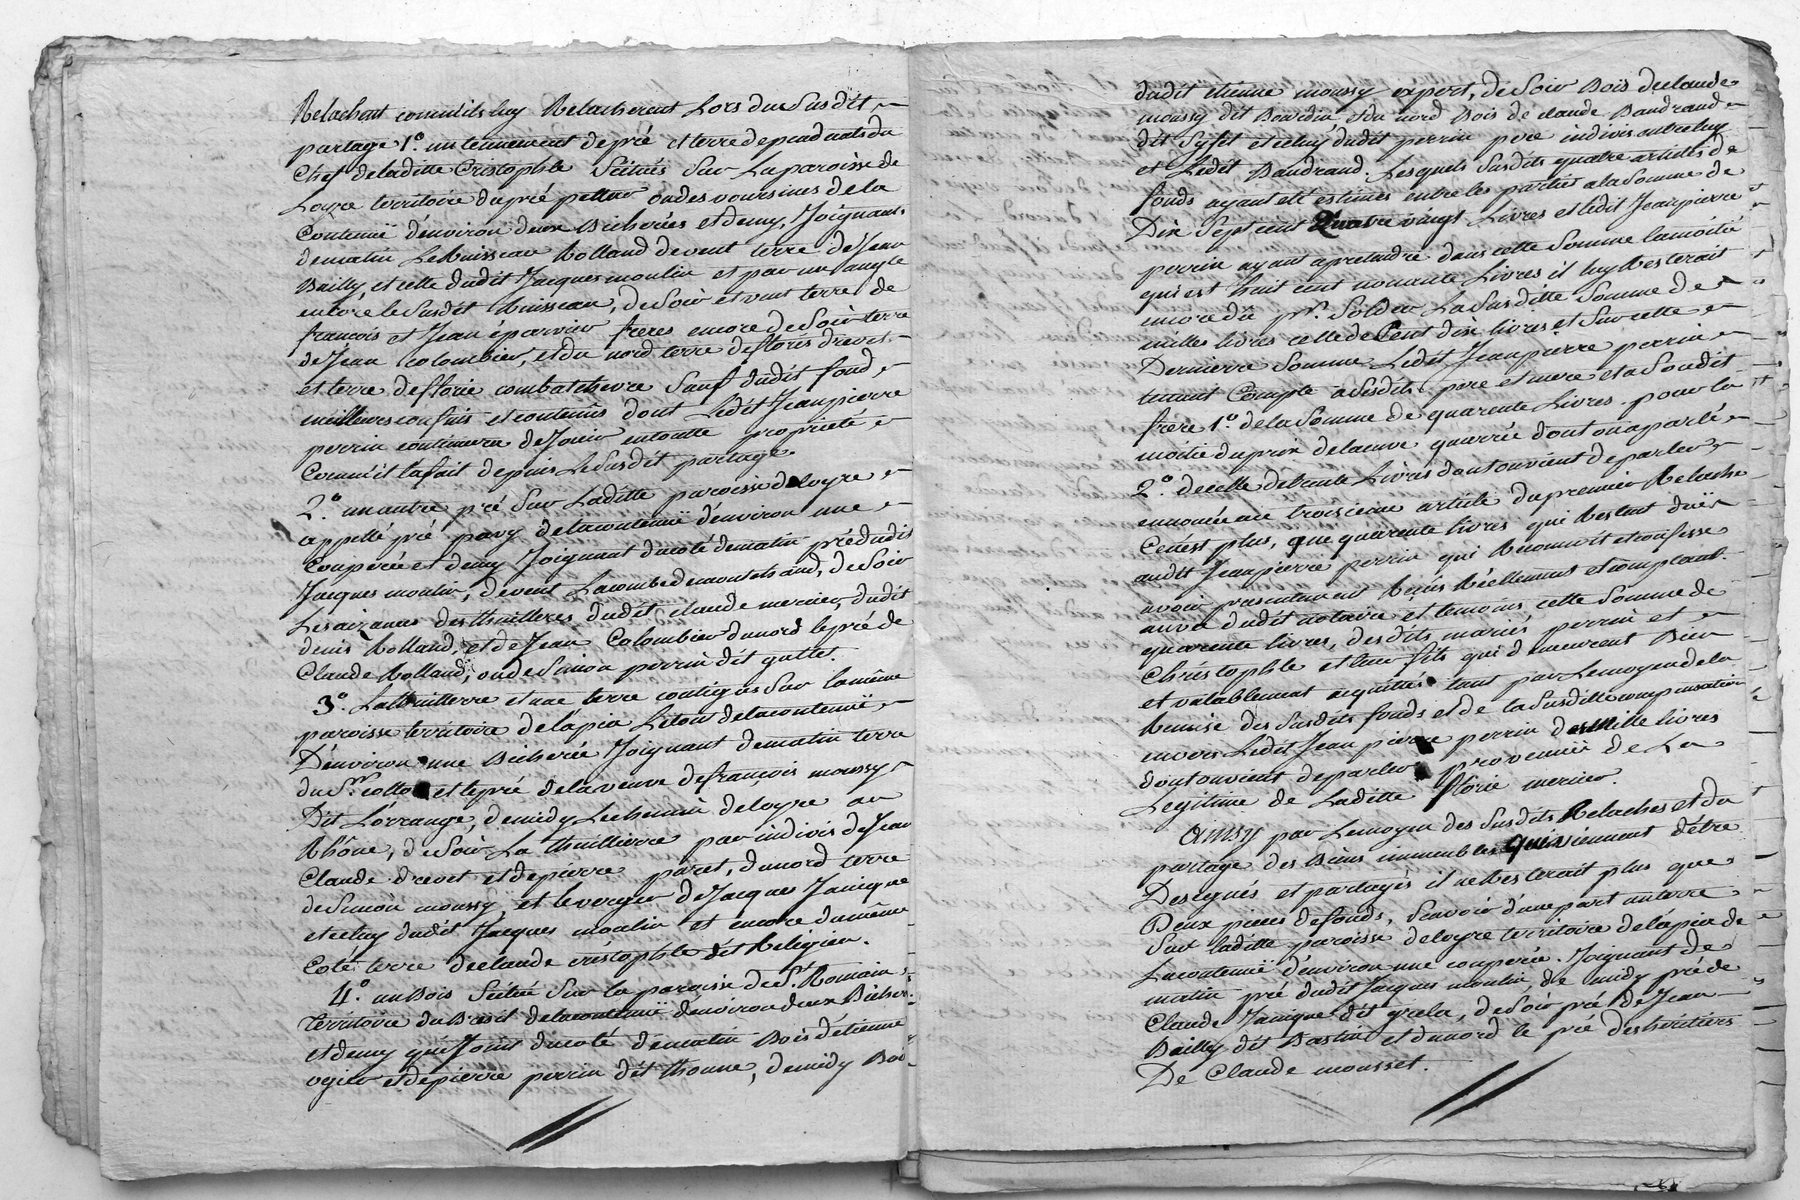 Relachent comm'ils luy Relacherent Lors du Susdit
partage 1.° un tennement de pré et terre de pred nats du
Chef de laditte Cristophle Scitués Sur La paroisse de
Loyre territoire du pré pellier ou des voursines de la
Contenüe d'énviron deux Bicherées et demy, Joignant
de matin Le Ruisseau Rolland devent terre de Jean
Bailly et celle dudit Jacques moulin et par un angle
encóre le Susdit Ruisseau, de Soir et vent terre de
françois et Jean éparvier freres encore de Soir terre
de Jean Colombier, et du nord terre de floris drevet
et terre de florie combatchevre Sauf dudit fond
meilleurs confins et contenüs dont Ledit Jean pierre
perrin continuera de Jouir en toutte propriété
Comm'il l'a fait depuis le Susdit partage.
2.° un autre pré Sur Laditte paroisse de loyre
appellé pré pavy de la contenüe d'énviron une
Coupérée et demy Joignant du coté de matin pré dudit
Jacques moulin, devent Lacombe de montchaud, de Soir
Les aizances des thuilleres, dudit claude mercier, dudit
denis Rolland, et de Jean Colombier du nord le pré de
Claude Rolland, ou de Simon perrin dit guttet.
3.° La thuillerre et une terre contigüe Sur la même
paroisse territoire de lápin Létour de la contenüe
D'énviron une Bicherée Joignant de matin terre
du S.r collo et le pré de la veuve de françois moussy
Dit Lórrange, de midy Le chemin de loyre au
Rhône, de Soir La thuillierre par indivis de Jean
Claude drevet et de pierre paret, du nord terre
de Simon moussy, et le verger de Jacques Janique
et celuy dudit Jacques moulin et encore du même
Coté terre de claude cristophle dit Religieu.
4.° un Bois Scitué Sur la paroisse de S.t Romain
territoire du Bresil de la contenüe d'énviron deux Bicher
et demy qui Joint du coté de matin Bois d'étienne
ogier et de pierre perrin dit thonne, de midy Boi
dudit étienne moussy expert, de Soir Bois de claude
moussy dit Bourdin et du nord Bois de claude Baudrand
dit Syset et celuy dudit perrin pere indivis entre luy
et Ledit Baudrand. Lesquels Susdits quatre articles de
fonds ayant eté estimés entre les parties a la Somme de
Dix Sept cent Quatre vingt Livres et ledit Jean pierre
perrin ayant a prétendre dans cette Somme la moitié
qui est huit cent nonante Livres il luy Resterait
encore du p.r Solder La Susditte Somme de
mille livres celle de Cent dix livres et Sur cette
Dernierre Somme Ledit Jean pierre perrin
tenant Compte a Sesdits pere et mere et a Sondit
frere 1.° de la Somme de quarente Livres pour la
moitié du prix de la cuve quarrée dont on a parlé
2.° de celle de trente Livres dont on vient de parler
ennoncée au troisieme article du premier Relache
Ce n'est plus, que quarente livres qui Restent duës
audit Jean pierre perrin qui Reconnoit et confesse
avoir presentement Reçus Réellement et comptant
au vu dudit notaire et temoins cette Somme de
quarente livres, desdits mariés perrin et
Christophle et leur fils qui demeurent Bien
et valablement acquittés tant par Le moyen de la
Remise des Susdits fonds et de la Susditte compensation
envers Ledit Jean pierre perrin des mille livres
dont on vient de parler provenüe de La
Legitime de Laditte florie mercier.
Ainsy par Le moyen des Susdits Relaches et du
partage des Biens immeubles qui viennent d'être
Designés et partagés il ne Resterait plus que
Deux pieces de fonds, Scavoir d'une part un terre
Sur laditte paroisse de loyre territoire de lápin de
La contenüe d'énviron une coupérée. Joignant de
matin pré dudit Jacques moulin, de midy pré de
Claude Janique dit grela, de Soir pré de Jean
Bailly dit Bastin et du nord le pré des héritiers
De Claude mousset.